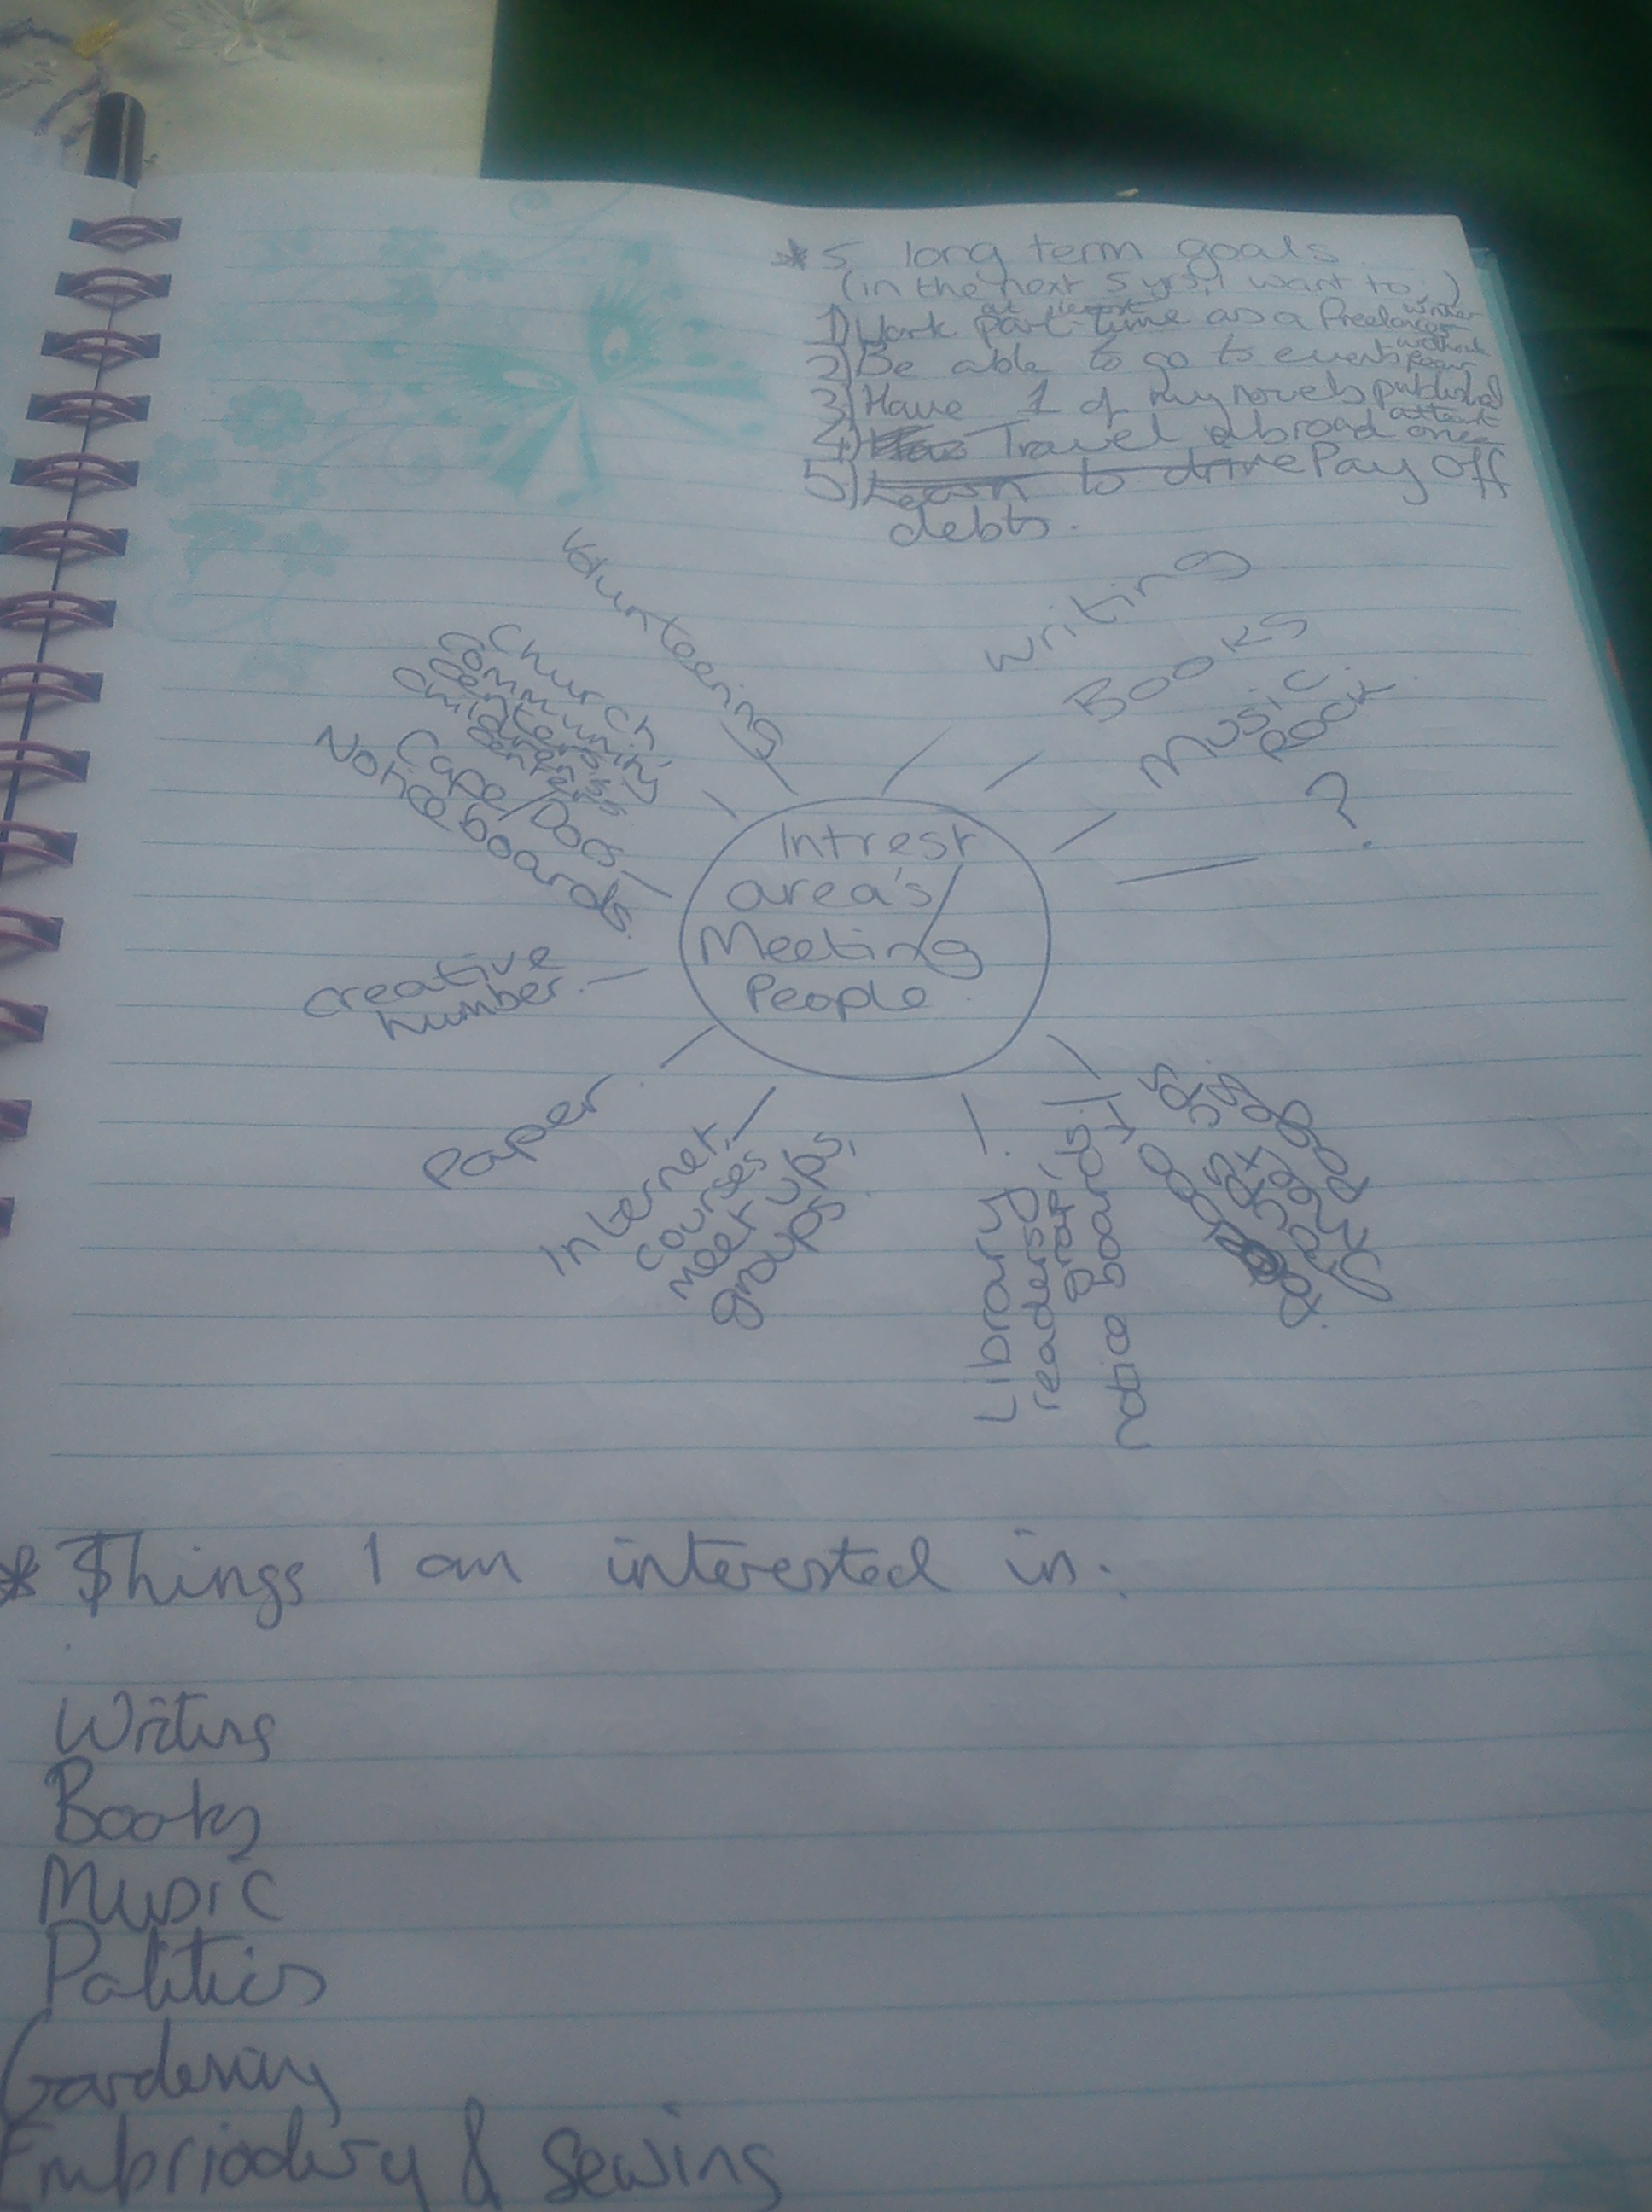 * 5 long term goals.
(in the next 5 yrs, I want to:)
1) Work at least part-time as a freelance writer
2) Be able to go to events without fear
3) Have 1 of my novels published
4) Travel abroad at least once
5) Learn to drive Pay off
debts.
Volunteering
Writing
Books
Music
Rock.
?
Church
Community
centers
Childrens
centers
Cafe/Docs
Notice boards.
Creative
number.
Paper.
Internet,
courses
meet ups,
groups
Library
readers
group,
notice boards.
Pages
Intrest
area's/
Meeting
People.
* Things I am interested in:
Writing
Books
Music
Politics
Gardening
Embriodery & Sewing